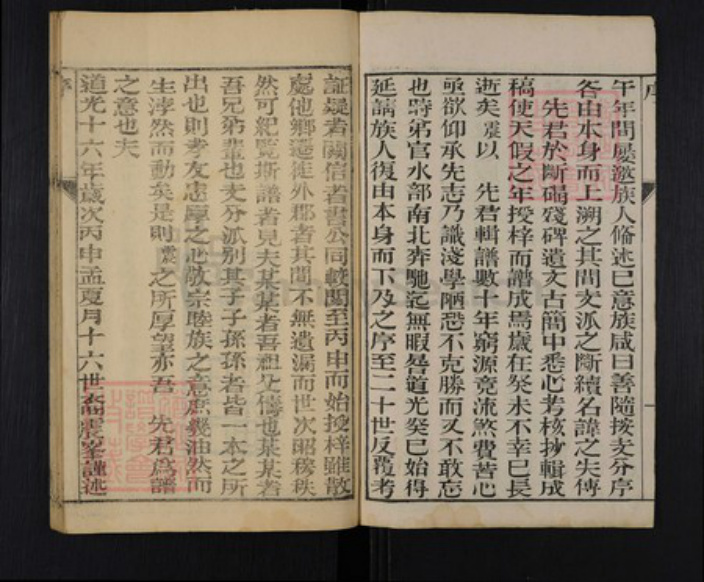 序
午年間屢邀族人脩述已意族咸曰善隨按支分序
各由本身而上溯之其間支派之斷續名諱之失傳
先君於斷碣殘碑遺文古簡中悉心考核抄輯成
稿使天假之年授梓而譜成焉歲在癸未不幸已長
逝矣震以 先君輯譜數十年窮源竟流煞費苦心
亟欲仰承先志乃識淺學陋恐不克勝而又不敢忘
也時第官水部南北奔馳迄無暇晷道光癸巳始得
延請族人復由本身而下及之序至二十世反覆考
証疑者闕信者書公同較閱至丙申而始授梓雖散
處他鄉遷徙外郡者其間不無遺漏而世次昭穆秩
然可紀覽斯譜者見夫某某者吾祖父儔也某某者
吾兄弟輩也支分派別其子子孫孫者皆一本之所
出也則孝友忠厚之心敬宗睦族之意庶幾油然而
生浡然而動矣是則震之所厚望亦吾 先君為譜
之意也夫
道光十六年歲次丙申孟夏月十六世裔震峯謹述
序